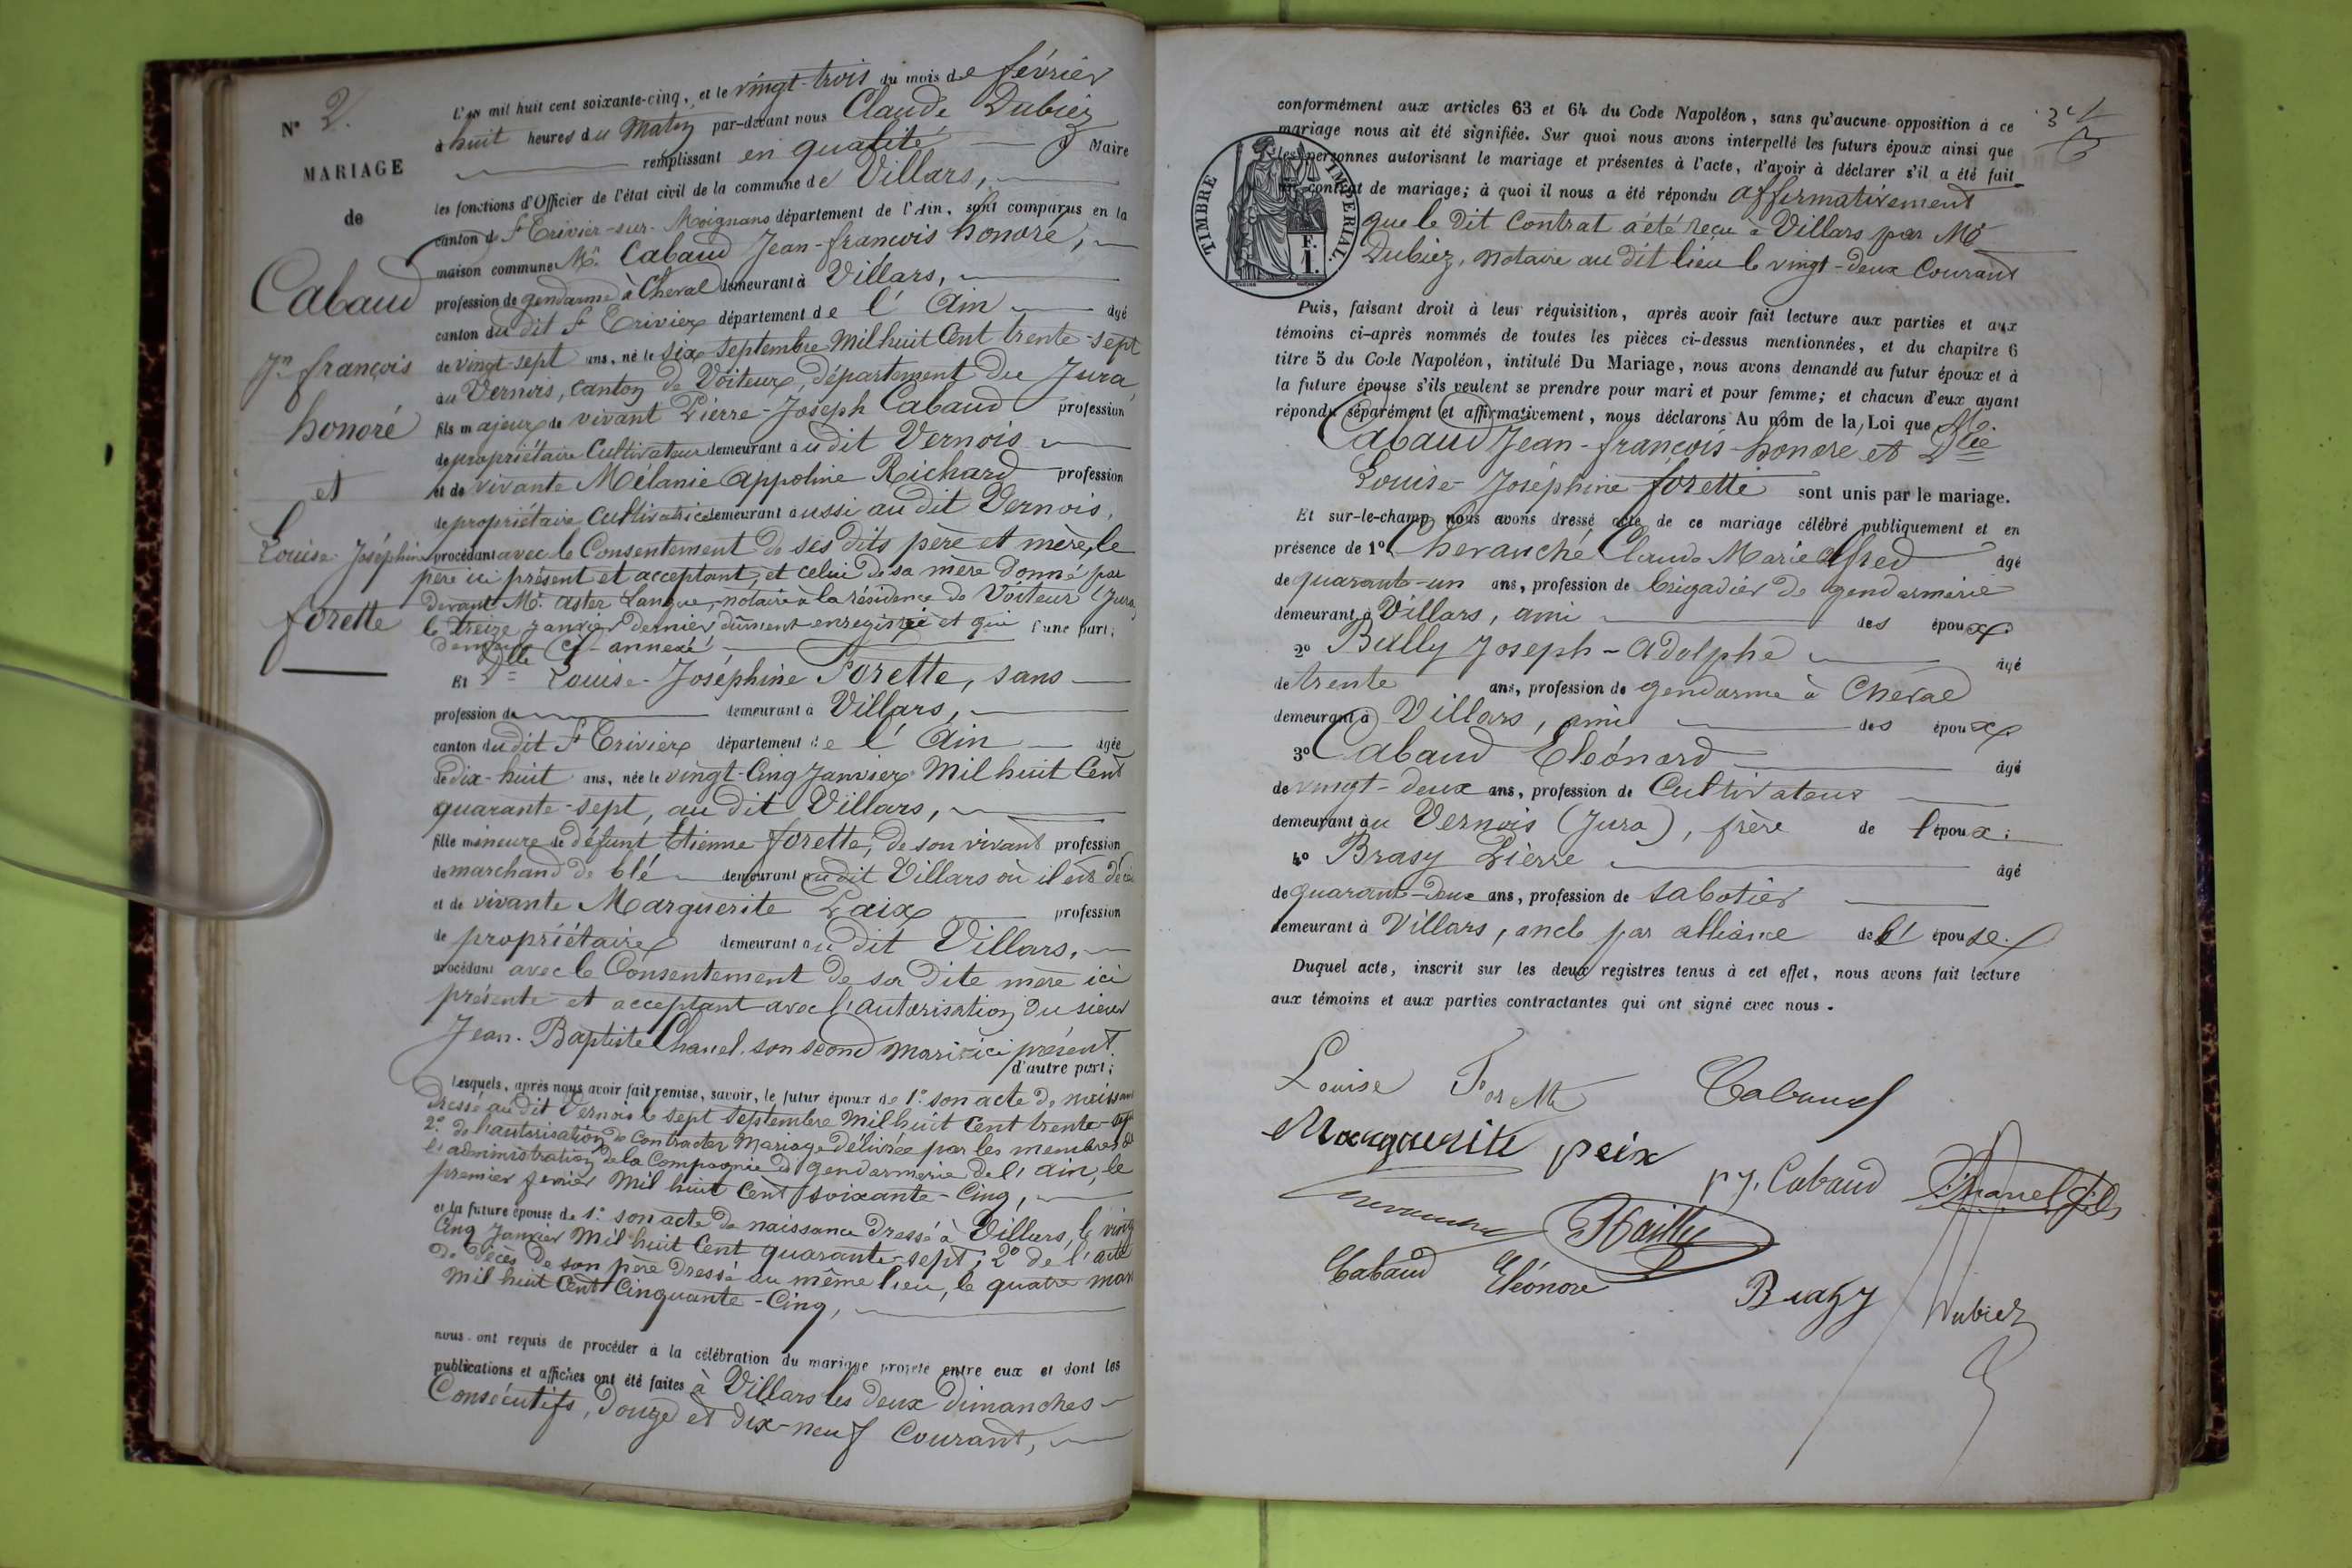 N° 2.
MARIAGE
de
Cabaud
Jn françois
honoré
et
Louise-Joséphine
forette
L'an mil huit cent soixante-cinq, et le vingt-trois du mois de février
à huit heures du Matin par-devant nous Claude Dubiez
remplissant en qualité de Maire
les fonctions d'Officier de l'état civil de la commune de Villars,
canton de St Trivier-sur-Moignans département de l'Ain, sont comparus en la
maison commune Mr. Cabaud Jean-françois honoré,
profession de gendarme à Cheval demeurant à Villars,
canton du dit St Trivier département de l'Ain âgé
de vingt-sept ans, né le six Septembre Mil huit Cent trente-sept
au Vernois, canton de Voiteur, département du Jura
fils majeur de vivant Pierre-Joseph Cabaud profession
de propriétaire Cultivateur demeurant audit Vernois
et de vivante Mélanie Appoline Richard profession
de propriétaire Cultivatrice demeurant aussi au dit Vernois,
procédant avec le Consentement de ses dits père et mère, le
père ici présent et acceptant, et celui de sa mère donné par
devant Me. Langue, notaire à la résidence de Voiteur (Jura)
le treize janvier dernier dûment enregistré et qui d'une part;
demeure Ci-annexé
Et Dlle Louise-Joséphine Forette, sans
profession de demeurant à Villars,
canton du dit St Trivier département de l'Ain âgée
de dix-huit ans, née le vingt-Cinq Janvier Mil huit Cent
quarante-sept, au dit Villars,
fille mineure de défunt Etienne forette, de son vivant profession
de marchand de blé demeurant audit Villars où il est décédé
et de vivante Marguerite Paix profession
de propriétaire demeurant au dit Villars,
procédant avec le Consentement de sa dite mère ici
présente et acceptant avec l'autorisation du sieur
Jean-Baptiste Chanel, son second mari ici présent.
d'autre part;
Lesquels, après nous avoir fait remise, savoir, le futur époux de 1° son acte de naissance
dressé au dit Vernois le sept septembre Mil huit Cent trente-sept
2° de l'autorisation de Contracter Mariage délivrée par les membres de
l'administration de la Compagnie de gendarmerie de l'Ain, le
premier février Mil huit Cent soixante-Cinq,
et la future épouse de 1° son acte de naissance dressé à Villars, le vingt
Cinq Janvier Mil huit Cent quarante-sept; 2° de l'acte
de décès de son père dressé au même lieu, le quatre mars
Mil huit Cent Cinquante-Cinq,
nous ont requis de procéder à la célébration du mariage projeté entre eux et dont les
publications et affiches ont été faites à Villars les deux dimanches
Consécutifs, douze et dix-neuf Courant,
conformément aux articles 63 et 64 du Code Napoléon, sans qu'aucune opposition à ce
mariage nous ait été signifiée. Sur quoi nous avons interpellé les futurs époux ainsi que
les personnes autorisant le mariage et présentes à l'acte, d'avoir à déclarer s'il a été fait
un contrat de mariage; à quoi il nous a été répondu affirmativement
que le dit Contrat a été reçu à Villars par Me
Dubiez, notaire au dit lieu le vingt-deux Courant
TIMBRE IMPERIAL.
F.
1.
Puis, faisant droit à leur réquisition, après avoir fait lecture aux parties et aux
témoins ci-après nommés de toutes les pièces ci-dessus mentionnées, et du chapitre 6
titre 5 du Code Napoléon, intitulé Du Mariage, nous avons demandé au futur époux et à
la future épouse s'ils veulent se prendre pour mari et pour femme; et chacun d'eux ayant
répondu séparément et affirmativement, nous déclarons Au nom de la Loi que Mr.
Cabaud Jean-françois-honoré et Dlle
Louise-Joséphine forette sont unis par le mariage.
Et sur-le-champ nous avons dressé acte de ce mariage célébré publiquement et en
présence de 1° Chevauché Claude Marie Alfred âgé
de quarante-un ans, profession de brigadier de gendarmerie
demeurant à Villars, ami des époux
2° Bully Joseph-Adolphe âgé
de trente ans, profession de gendarme à Cheval
demeurant à Villars, ami des époux
3° Cabaud Eléonord âgé
de vingt-deux ans, profession de Cultivateur
demeurant au Vernois (Jura), frère de l'époux;
4° Brasy Pierre âgé
de quarante-deux ans, profession de sabotier
demeurant à Villars, oncle par alliance de l'épouse.
Duquel acte, inscrit sur les deux registres tenus à cet effet, nous avons fait lecture
aux témoins et aux parties contractantes qui ont signé avec nous.
Louise Forette Cabaud
Marguerite paix
p j. Cabaud Chanel fils
Cabaud Eléonore
Brazy Dubiez